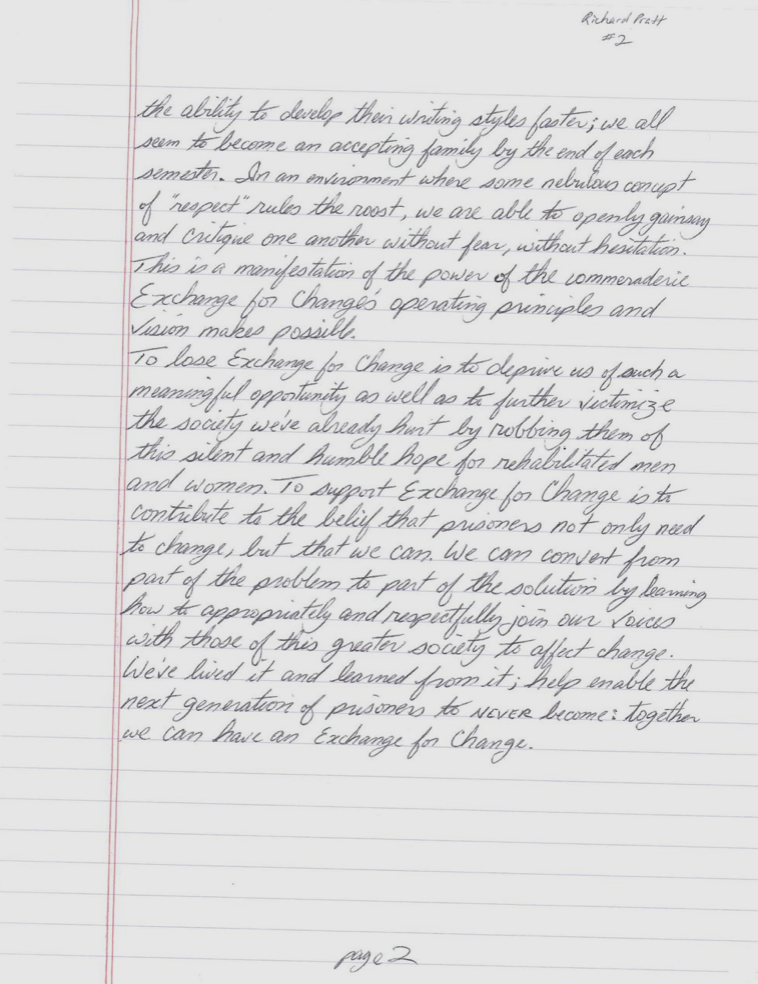 Richard Pratt
#2
the ability to develop their writing styles faster; we all
seem to become an accepting family by the end of each
semester. In an environment where some nebulous concept
of "respect" rules the roost, we are able to openly gainsay
and critique one another without fear, without hesitation.
This is a manifestation of the power of the commeraderie
Exchange for Change's operating principles and
vision makes possible.
To lose Exchange for Change is to deprive us of such a
meaningful opportunity as well as to further victimize
the society we've already hurt by robbing them of
this silent and humble hope for rehabilitated men
and women. To support Exchange for Change is to
contribute to the belief that prisoners not only need
to change, but that we can. We can convert from
part of the problem to part of the solution by learning
how to appropriately and respectfully join our voices
with those of this greater society to affect change.
We've lived it and learned from it; help enable the
next generation of prisoners to NEVER become: together
we can have an Exchange for Change.
page 2